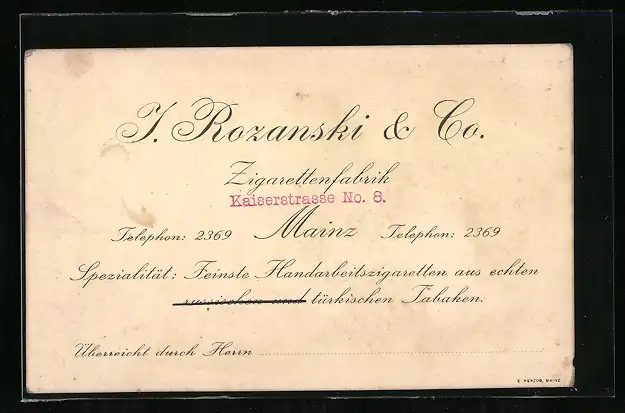 J. Rozanski & Co.
Zigarettenfabrik
Kaiserstrasse No. 8.
Telephon: 2369 Mainz Telephon: 2369
Spezialität: Feinste Handarbeitszigaretten aus echten
russischen und türkischen Tabaken.
Überreicht durch Herrn
E. HERZOG, MAINZ